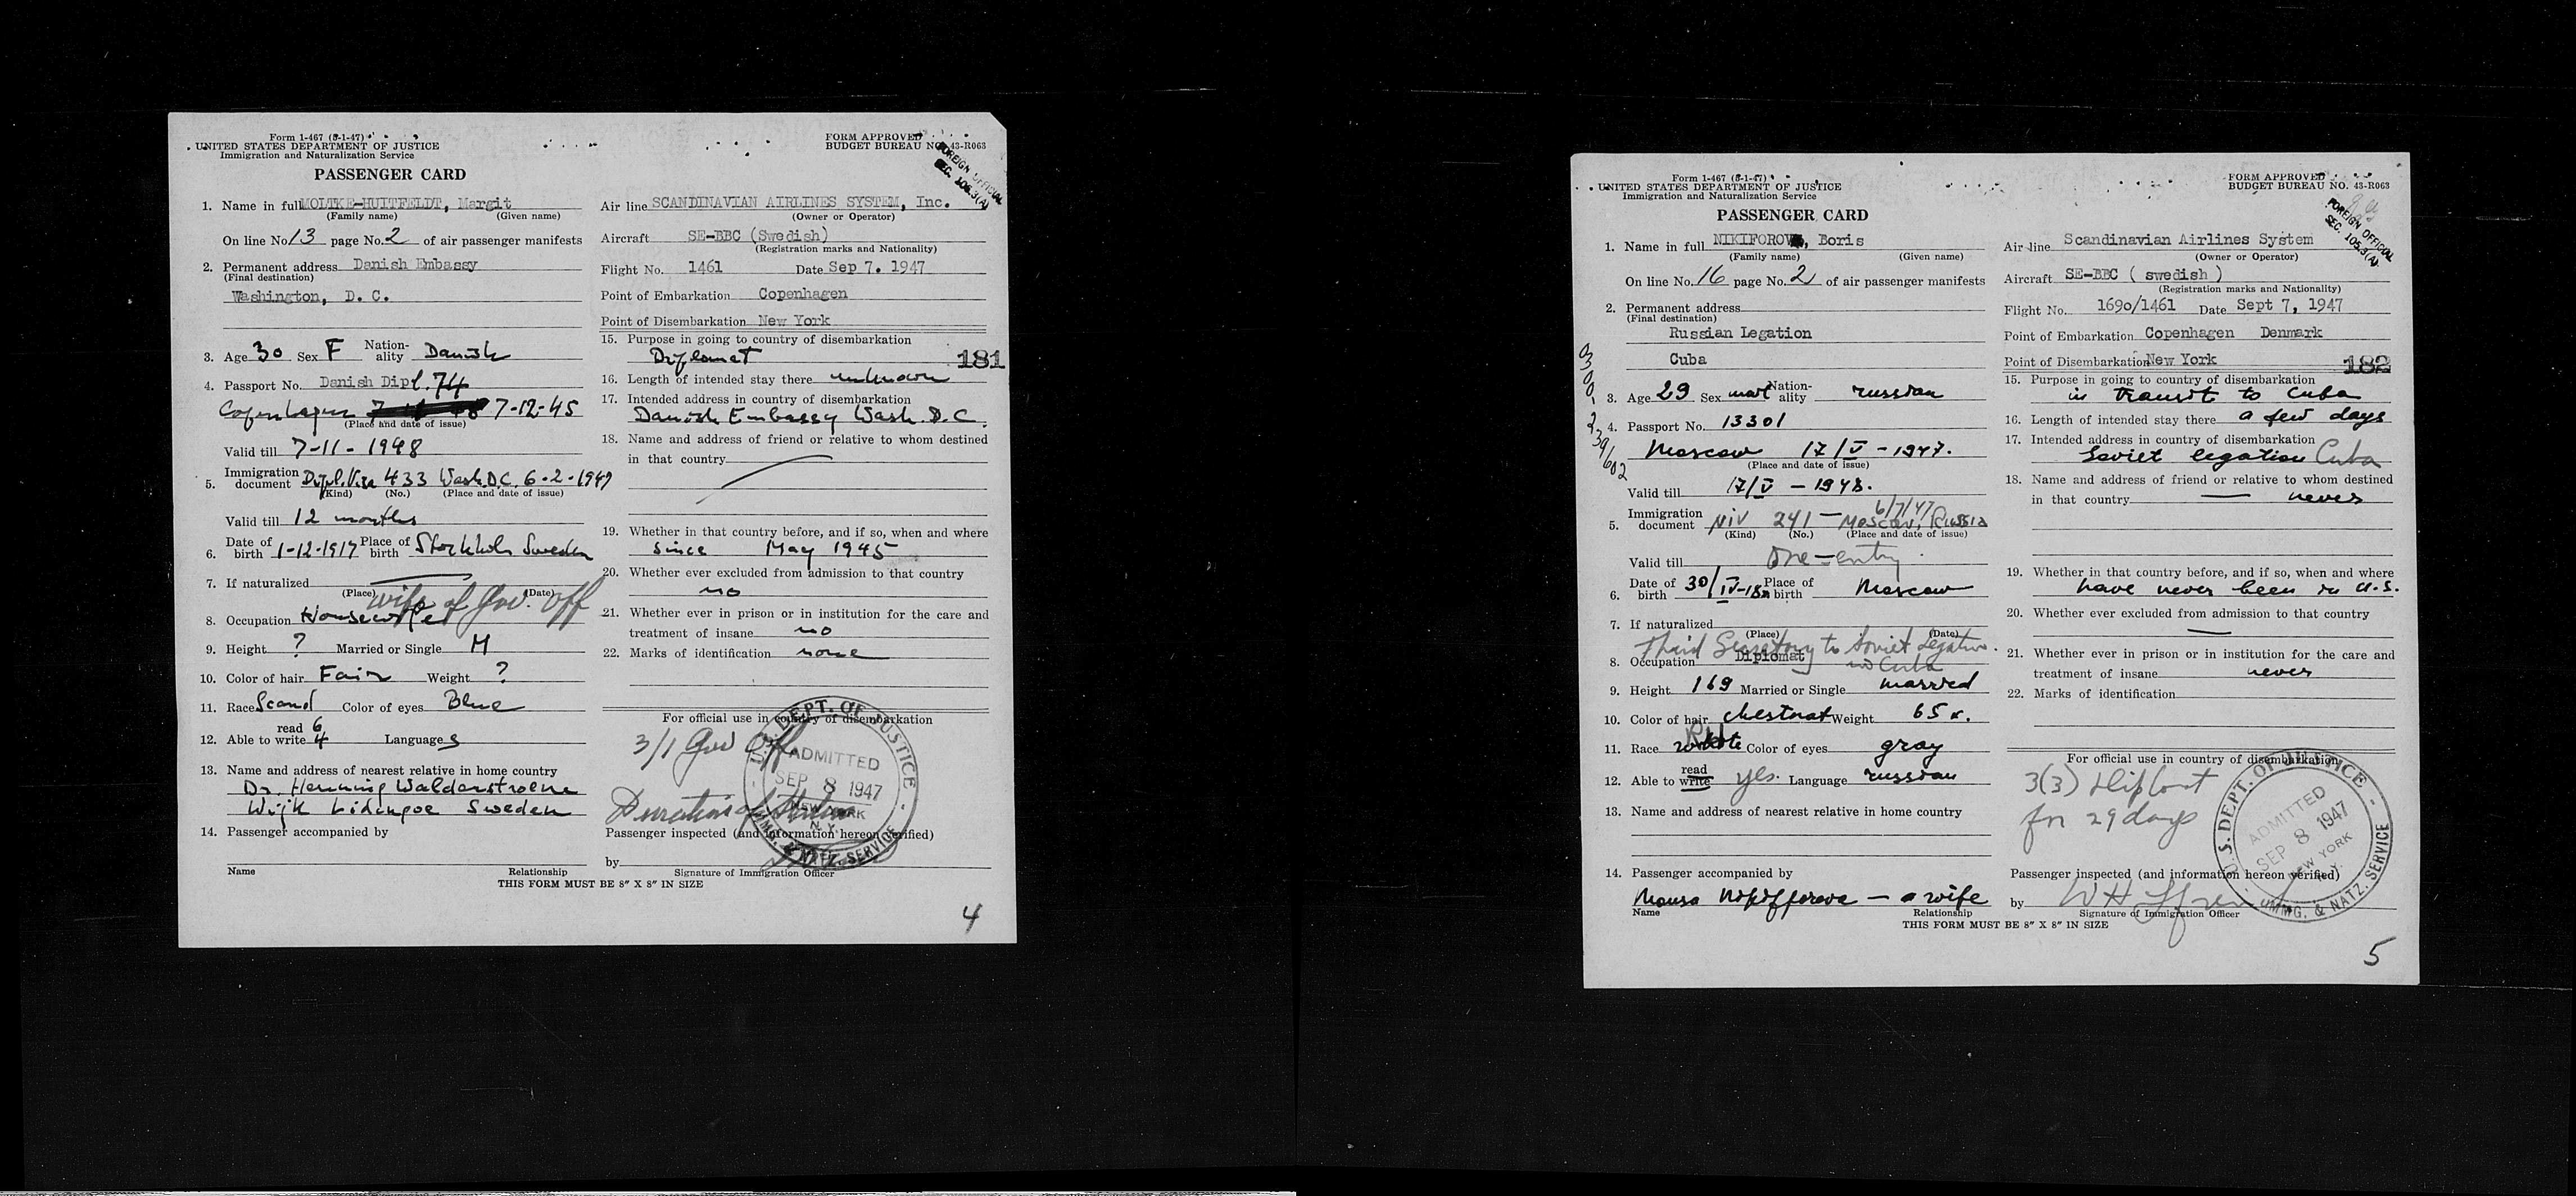 Form I-467 (8-1-47)
UNITED STATES DEPARTMENT OF JUSTICE
Immigration and Naturalization Service
PASSENGER CARD
FORM APPROVED
BUDGET BUREAU NO. 43-R063
FOREIGN OFFICIAL
SEC. 105.3(A)
1. Name in full MOLTKE-HUITFELDT, Margit
(Family name) (Given name)
On line No. 13 page No. 2 of air passenger manifests
2. Permanent address Danish Embassy
(Final destination)
Washington, D. C.
3. Age 30 Sex F Nationality Danish
4. Passport No. Danish Dipl. 74
Copenhagen 7-12-45
(Place and date of issue)
Valid till 7-11-1948
5. Immigration document Dipl. Visa 433 Wash. D.C. 6-2-1947
(Kind) (No.) (Place and date of issue)
Valid till 12 months
6. Date of birth 1-12-1917 Place of birth Stockholm Sweden
7. If naturalized
(Place) (Date)
wife of Gov. Off
8. Occupation Housewife
9. Height ? Married or Single M
10. Color of hair Fair Weight ?
11. Race Scand Color of eyes Blue
12. Able to read 6 write 4 Language s
13. Name and address of nearest relative in home country
Dr. Henning Waldenstroem
Wijk Lidingoe Sweden
14. Passenger accompanied by
Name Relationship
Air line SCANDINAVIAN AIRLINES SYSTEM, Inc.
(Owner or Operator)
Aircraft SE-BBC (Swedish)
(Registration marks and Nationality)
Flight No. 1461 Date Sep 7. 1947
Point of Embarkation Copenhagen
Point of Disembarkation New York
15. Purpose in going to country of disembarkation
Diplomat 181
16. Length of intended stay there unknown
17. Intended address in country of disembarkation
Danish Embassy Wash. D.C.
18. Name and address of friend or relative to whom destined
in that country
19. Whether in that country before, and if so, when and where
since May 1945
20. Whether ever excluded from admission to that country
no
21. Whether ever in prison or in institution for the care and
treatment of insane no
22. Marks of identification none
For official use in country of disembarkation
3/1 Gov Off
Duration of Status
U.S. DEPT. OF JUSTICE
ADMITTED
SEP 8 1947
NEW YORK
N. Y.
IMMG. & NATZ. SERVICE
Passenger inspected (and information hereon verified)
by
Signature of Immigration Officer
THIS FORM MUST BE 8" X 8" IN SIZE
4
Form I-467 (8-1-47)
UNITED STATES DEPARTMENT OF JUSTICE
Immigration and Naturalization Service
PASSENGER CARD
FORM APPROVED
BUDGET BUREAU NO. 43-R063
FOREIGN OFFICIAL
SEC. 105.3(A)
1. Name in full NIKIFOROV, Boris
(Family name) (Given name)
On line No. 16 page No. 2 of air passenger manifests
2. Permanent address
(Final destination)
Russian Legation
Cuba
0300-239/602
3. Age 29 Sex mal Nationality russian
4. Passport No. 13301
Moscow 17/V - 1947.
(Place and date of issue)
Valid till 17/V - 1948.
6/7/47
5. Immigration document NIV 241 - Moscow, Russia
(Kind) (No.) (Place and date of issue)
Valid till One-entry
6. Date of birth 30/IV-18 Place of birth Moscow
7. If naturalized
(Place) (Date)
Third Secretary to Soviet Legation
8. Occupation Diplomat Cuba
9. Height 169 Married or Single married
10. Color of hair chestnut Weight 65 k.
11. Race white Color of eyes gray
12. Able to read write yes. Language russian
13. Name and address of nearest relative in home country
14. Passenger accompanied by
- a wife
Name Relationship
Air line Scandinavian Airlines System
(Owner or Operator)
Aircraft SE-BBC ( swedish )
(Registration marks and Nationality)
Flight No. 1690/1461 Date Sept 7, 1947
Point of Embarkation Copenhagen Denmark
Point of Disembarkation New York 182
15. Purpose in going to country of disembarkation
in transit to Cuba
16. Length of intended stay there a few days
17. Intended address in country of disembarkation
Soviet legation Cuba
18. Name and address of friend or relative to whom destined
in that country — never
19. Whether in that country before, and if so, when and where
have never been in U.S.
20. Whether ever excluded from admission to that country
—
21. Whether ever in prison or in institution for the care and
treatment of insane never
22. Marks of identification
For official use in country of disembarkation
3(3) Diplomat
for 29 days
U.S. DEPT. OF JUSTICE
ADMITTED
SEP 8 1947
NEW YORK
N.Y.
IMMG. & NATZ. SERVICE
Passenger inspected (and information hereon verified)
by
Signature of Immigration Officer
THIS FORM MUST BE 8" X 8" IN SIZE
5